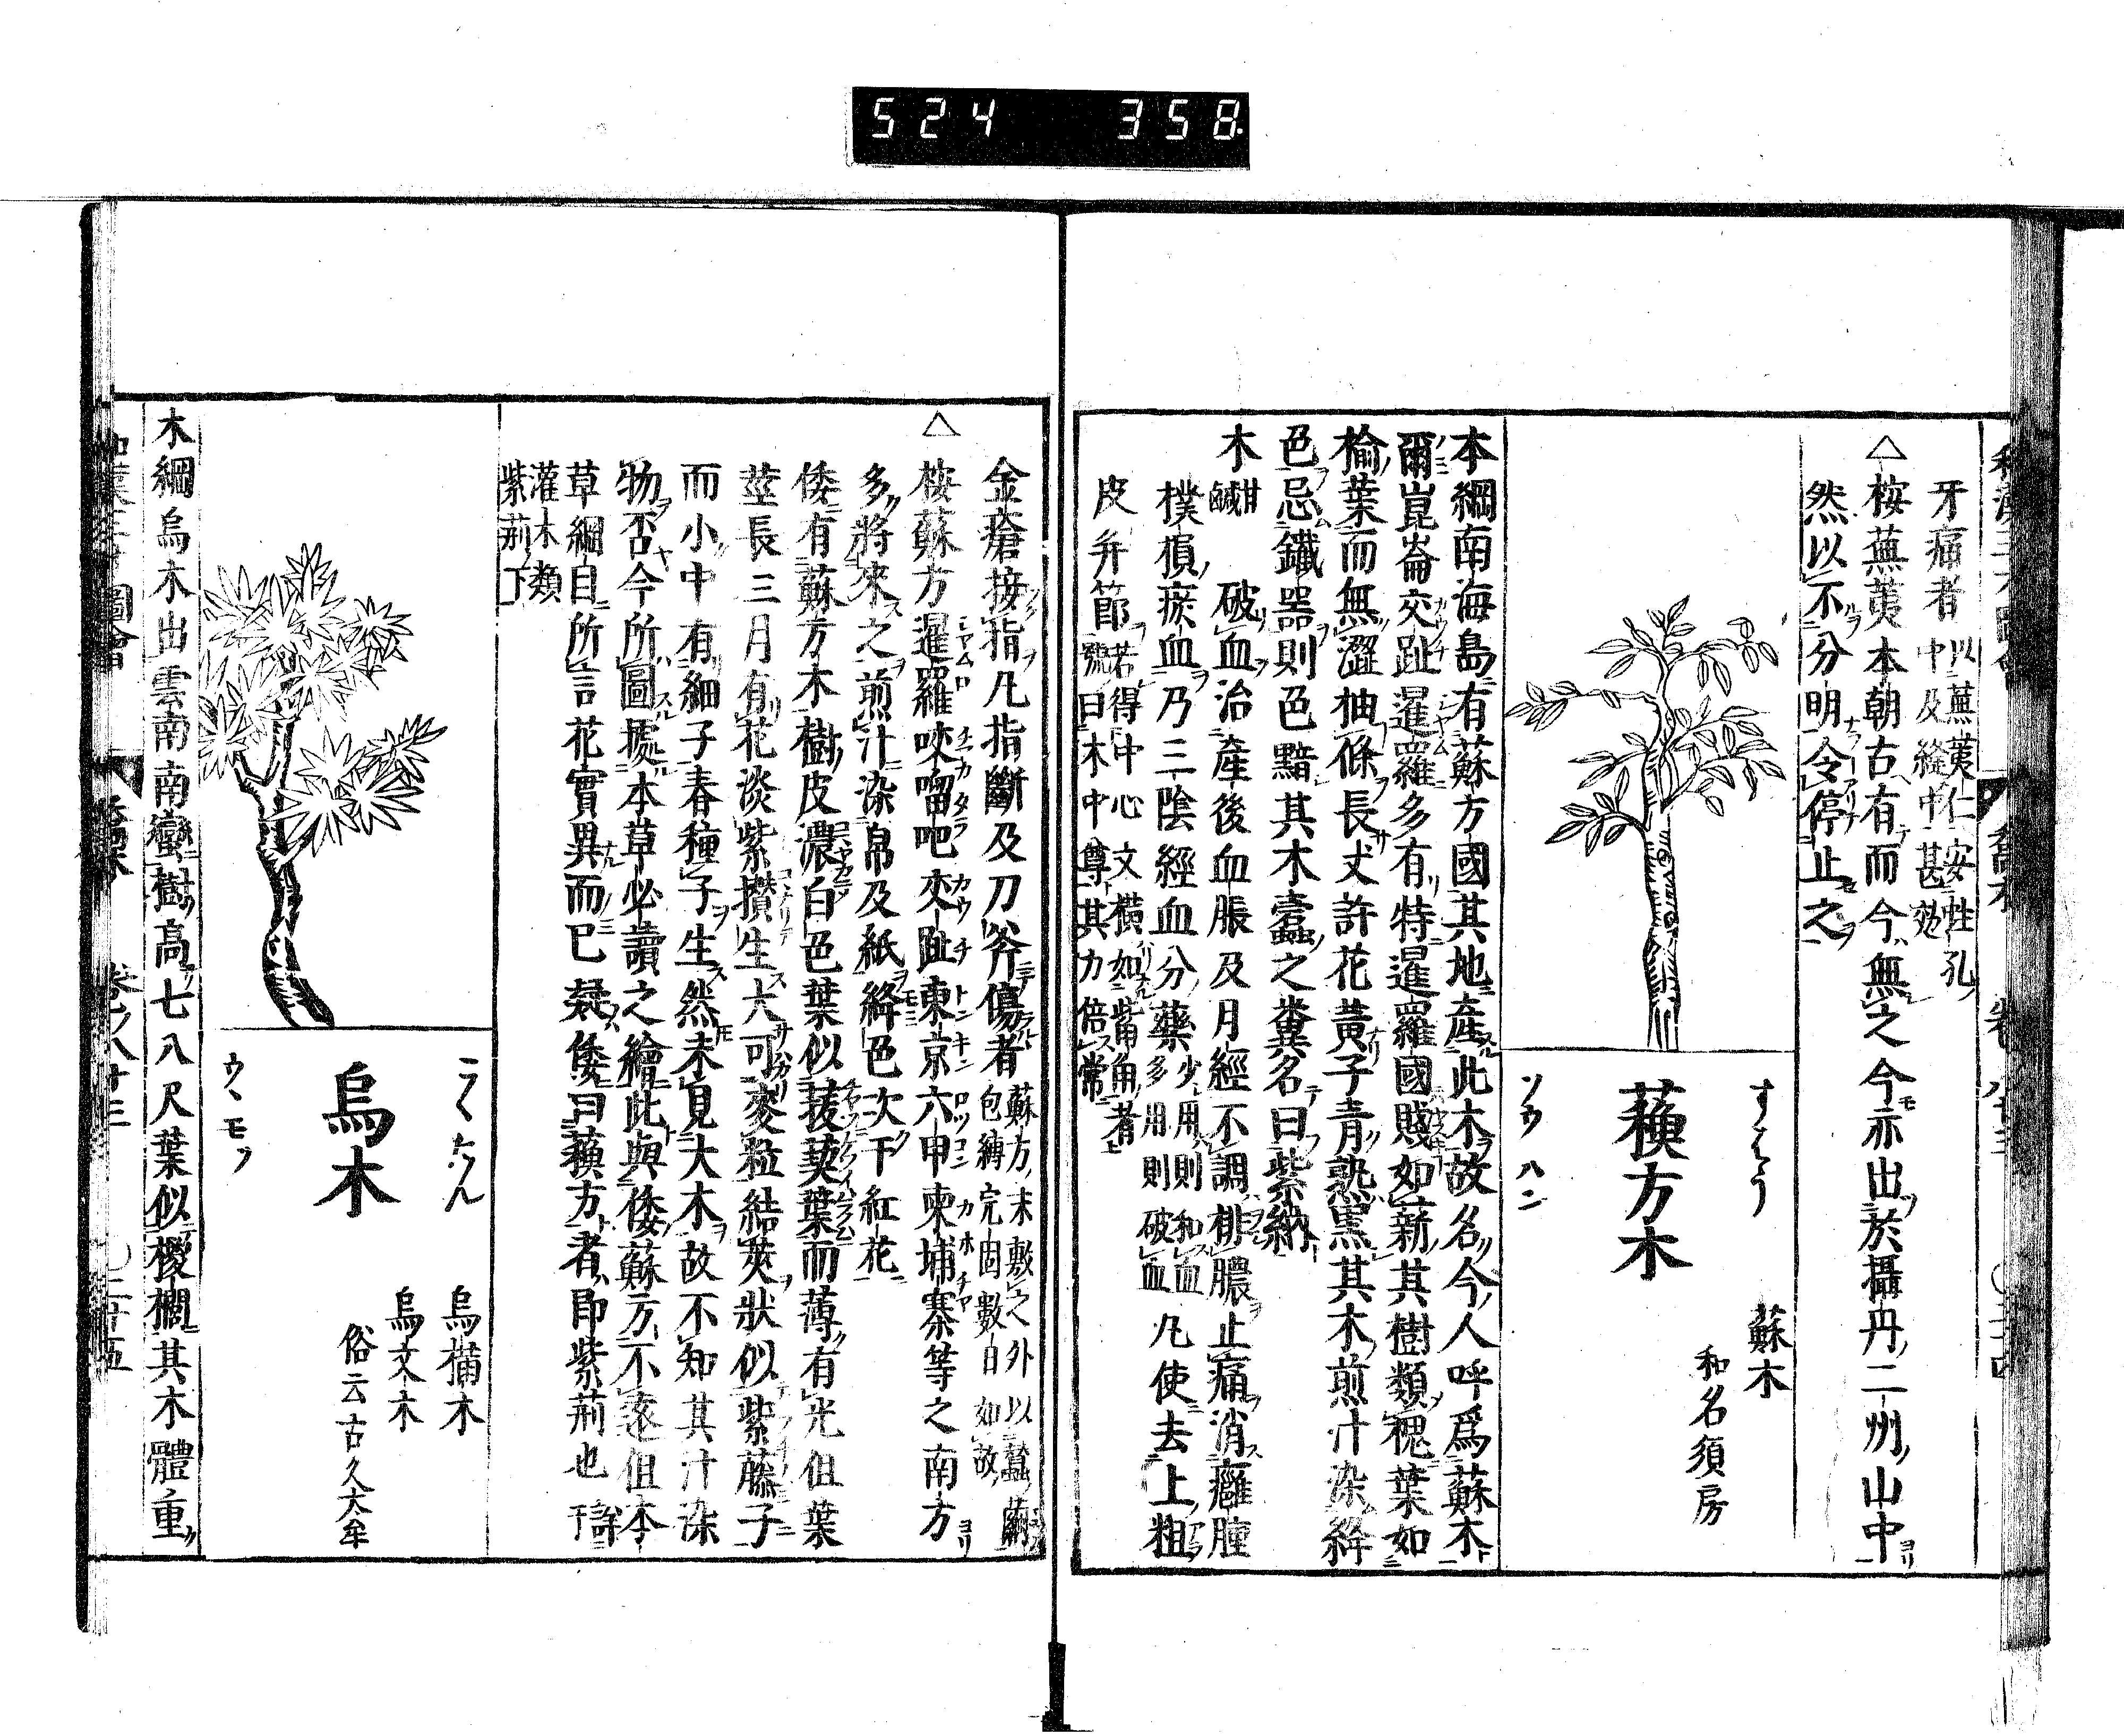 524 358
牙痛者 以蕪荑仁安蛀孔
中及縫中甚効
△桉蕪荑本朝古有而今無之今亦出於攝丹二州山中
然以不分明令停止之
すはう
蘓方木
ソウ ハン
蘇木
和名須房
本綱南海島有蘇方國其地產此木故名今人呼爲蘇木
爾崑崙交趾暹羅多有特暹羅國賤如薪其樹類槐葉如
榆葉而無澀抽條長丈許花黃子青熟黒其木煎汁染絳
色忌鐵器則色黯其木蠹之糞名曰紫納
木 甘鹹 破血治產後血脹及月經不調排膿止痛消癰腫
撲損瘀血乃三陰經血分藥 少用則和血
多用則破血 凡使去上粗
皮并節 若得中心文橫如紫角者
號曰木中尊其力倍常
金瘡接指凡指斷及刀斧傷者 蘇方末敷之外以蠶繭
包縛完固數日如故
△桉蘇方暹羅咬𠺕吧交趾東京六甲柬埔寨等之南方
多將來之煎汁染帛及紙絳色次于紅花
倭有蘇方木樹皮濃白色葉似菝葜葉而薄有光但葉
莖長三月有花淡紫攅生大可麥粒結莢狀似紫藤子
而小中有細子春種子生然未見大木故不知其汁染
物否今所圖據本草必讀之繪此與倭蘇方不遠但本
草綱目所言花實異而已疑倭曰蘓方者即紫荊也 詳于
灌木類
紫荊下
こくたん
烏木
ウヽ モフ
烏樠木
烏文木
俗云古久太牟
本綱烏木出雲南南蠻樹高七八尺葉似椶櫚其木體重